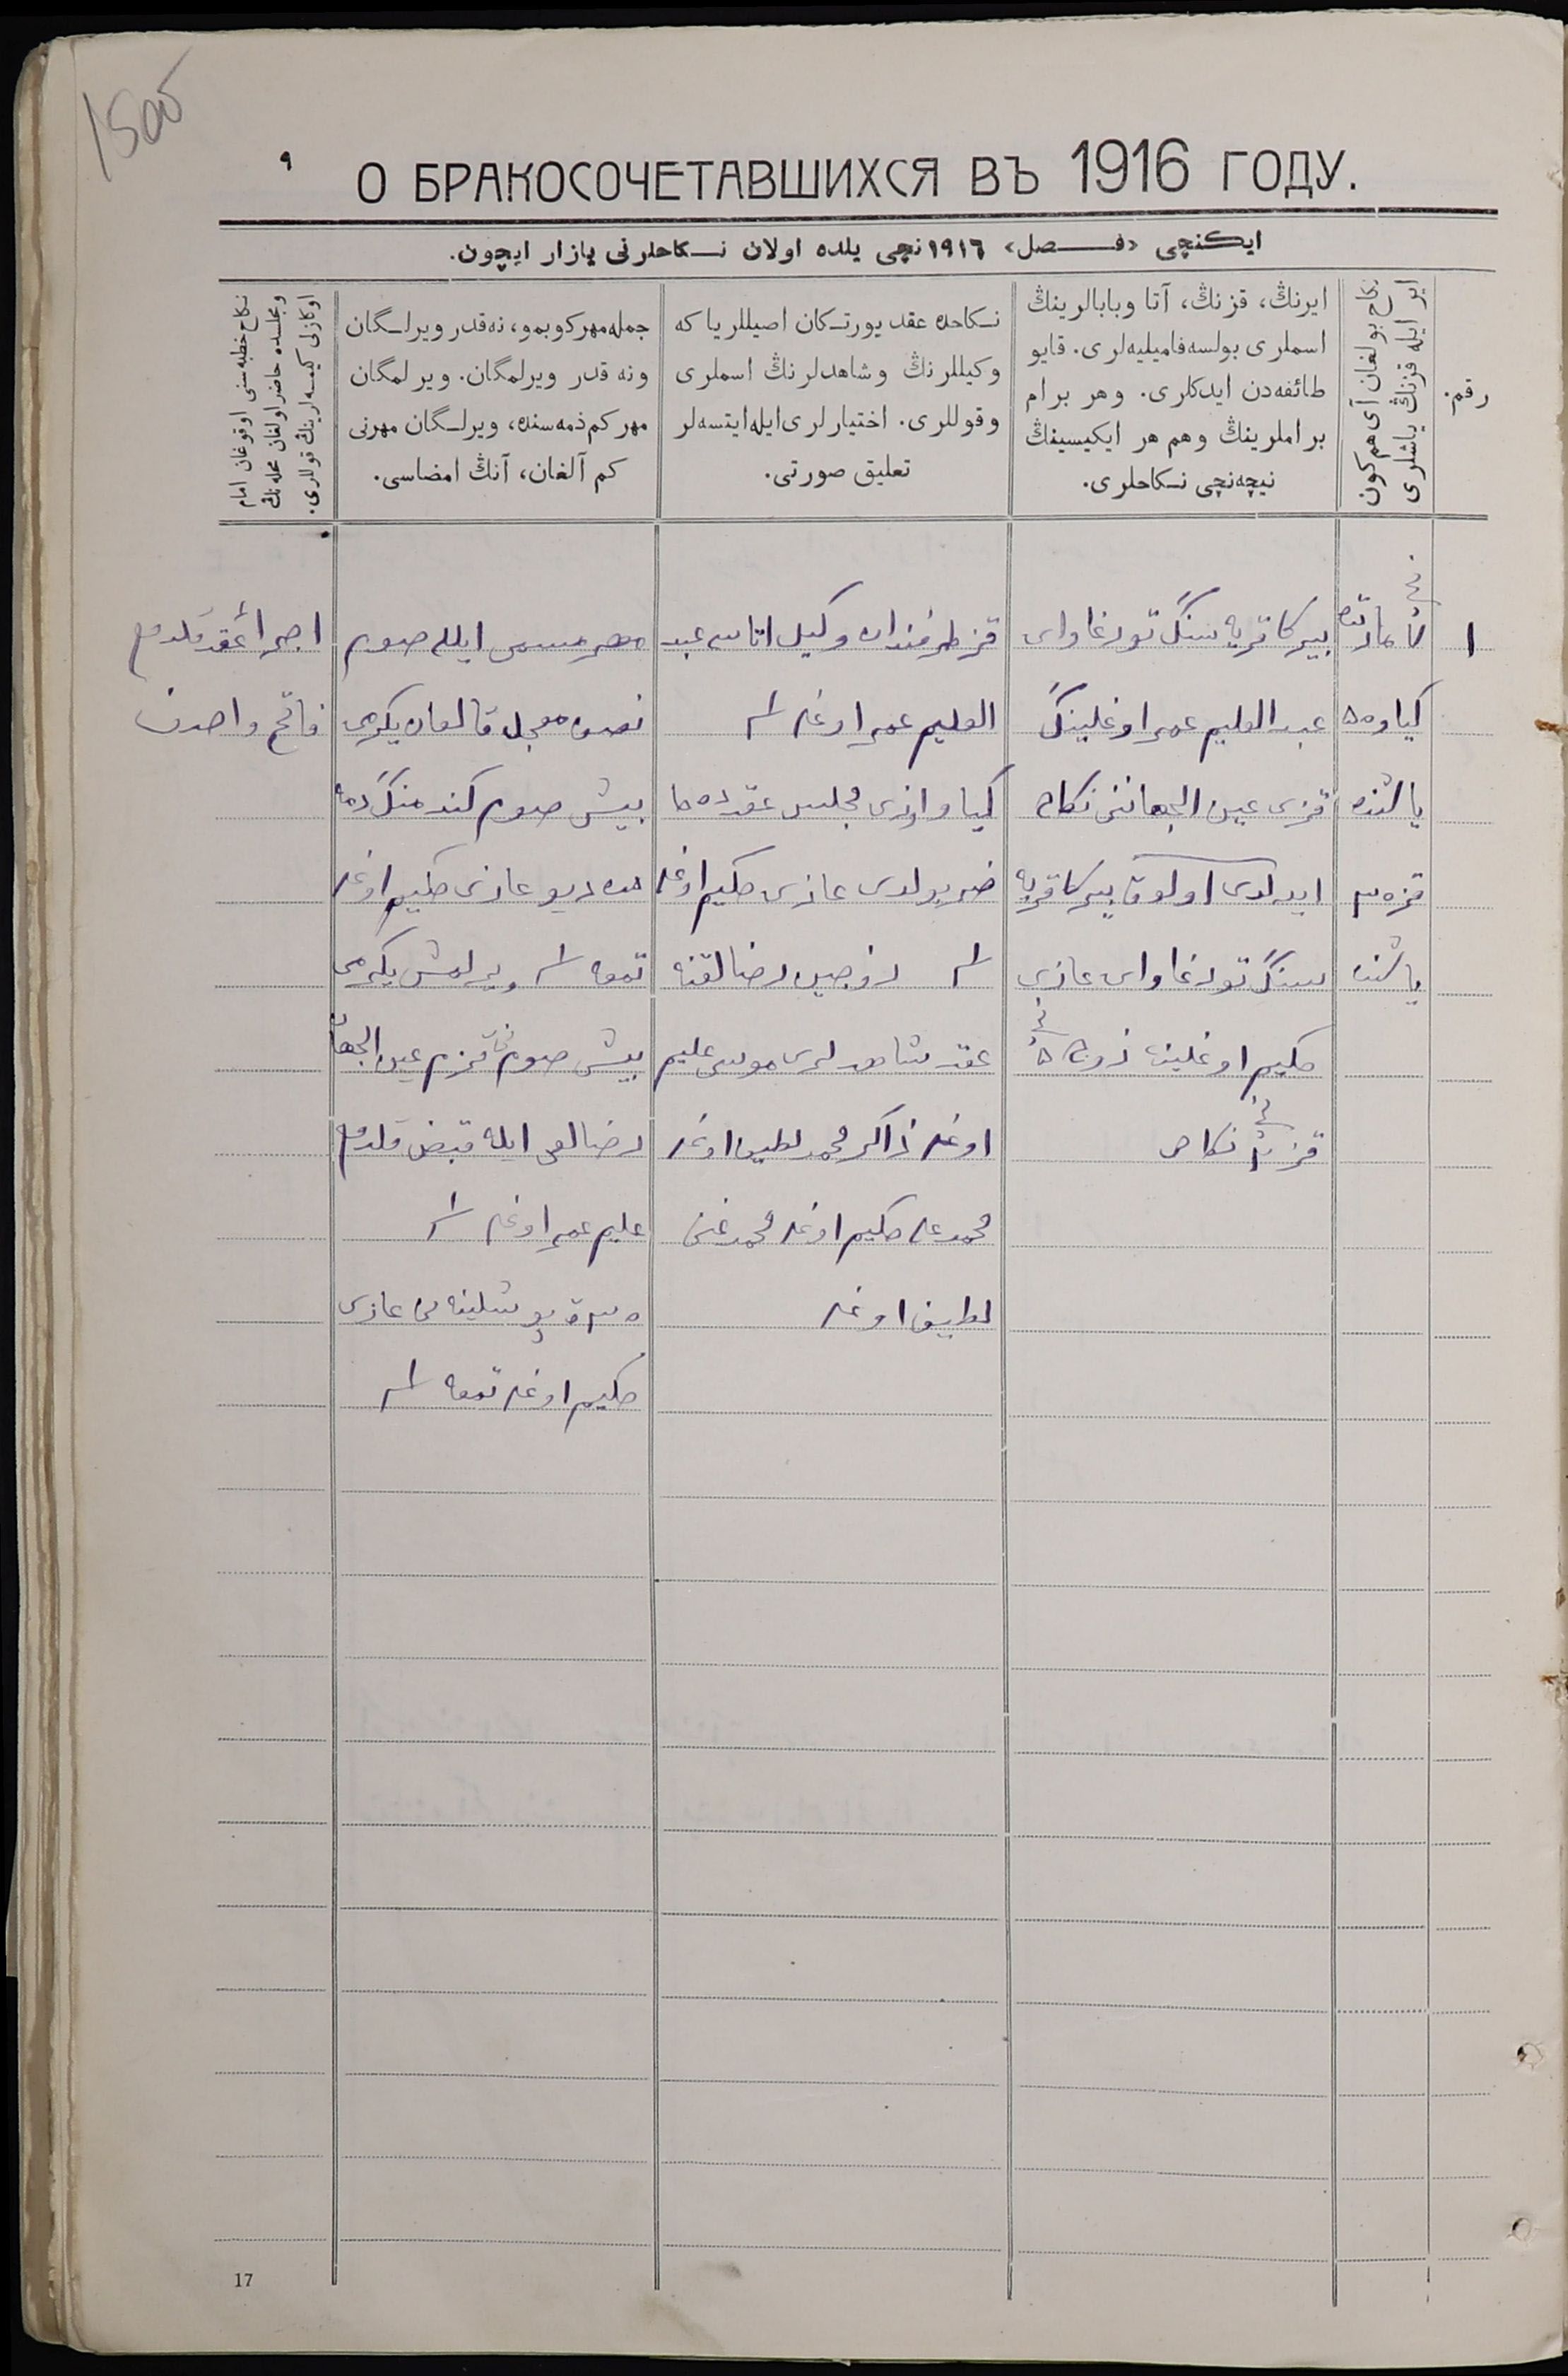 1500
٩
О БРАКОСОЧЕТАВШИХСЯ ВЪ 1916 ГОДУ.
ایكنچی «فصل» ١٩١٦ نچی یلده اولان نكاحلرنی یازار ایچون.
رقم.
نكاح بولغان آی هم كون
ایر ایله قزنڭ یاشلری
ایرنڭ، قزنڭ، آتا وبابالرینڭ
اسملری بولسه فامیلیه‌لری. قایو
طائفه‌دن ایدكلری. وهر برام
براملرینڭ وهم هر ایكیسینڭ
نیچه‌نچی نكاحلری.
نكاحده عقد یورتكان اصیللریا كه
وكیللرنڭ وشاهدلرنڭ اسملری
وقوللری. اختیارلری ایله ایتسه‌لر
تعلیق صورتی.
جمله مهر كوبمو، نه قدر ویرلگان
ونه قدر ویرلمگان. ویرلمگان
مهر كم ذمه‌سنده، ویرلگان مهرنی
كم آلغان، آنڭ امضاسی.
نكاح خطبه‌سنی اوقوغان امام
ومجلسده حاضر اولغان محله‌نڭ
اوكازلی كیمسه‌لرینڭ قوللری.
١
مارتده
كیاو ٥٥
یاشنده
قز ٣٥
یاشنده
بیركا قریه سنگ تورغا وای
عبد العلیم عمر اوغلینگ
قزی عین الجهاننی نكاح
ایدلدی اولوق بیركا قریه
سنگ تورغا وای غازی
حكیم اوغلینه زوج ٥
قز ٢ نكاحی
قز طرفندان وكیل اتاسی عبد
العلیم عمر اوغلی
كیاو اوزی مجلس عقدده حا
ضر بولدی غازی حكیم اوغلی
زوجین رضالقنه
عقد شاهدلری موسی علیم
اوغلی ذاكر محمد لطیف اوغلی
محمد علی حكیم اوغلی محمد غنی
لطیف اوغلی
مهر مسمی ایللی صوم
نصف معجل قالغان یكرمی
بیش صوم كندمنگ ذمه
مده دیو غازی حكیم اوغلی
تمغه ویرلمش یكرمی
بیش صومنی قزم عین الجهان
رضالغی ایله قبض قلدم
علیم عمر اوغلی
غازی
حكیم اوغلی تمغه
اجراء عقد قلدم
فاتح واحدف
17